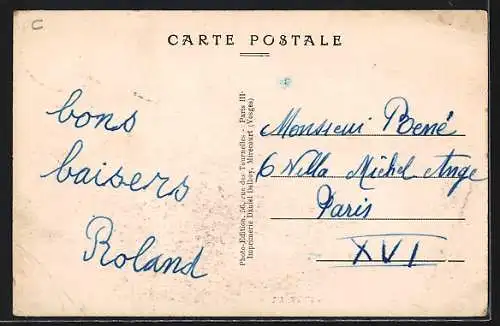 C
CARTE POSTALE
bons
baisers
Roland
Photo-Edition, 56, rue des Tournelles - Paris III·
Imprimerie Daniel Delboy, Mirecourt (Vosges)
Monsieur Bené
6 Villa Michel Ange
Paris
XVI